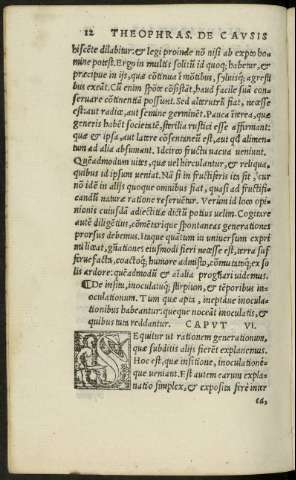 12 THEOPHRAS. DE CAVSIS
biscẽte dilabitur: & legi proinde nõ nisi ab expto ho
mine potest. Ergo in multis solitũ id quoq; habetur, &
præcipue in ijs, quæ cõtinua ĩ mõtibus, syluisq; agresti
bus exeãt. Cũ enim spõte cõsistãt, haud facile sua con
seruare cõtinentiã possunt. Sed alterutrũ fiat, necesse
est: aut radice, aut semine germinẽt. Pauca ĩterea, quæ
generis habẽt societatẽ, sterilia rustici esse affirmant:
quæ & ipsa, aut latere cõsentaneũ est, aut qd alimen-
tum ad alia absumant. Idcirco fructu uacua ueniunt.
Quẽadmodum uites, quæ uel hirculantur, & reliqua,
quibus id ipsum ueniat. Nã si in fructiferis ita sit, cur
nõ idẽ in alijs quoque omnibus fiat, quasi ad fructifi-
candũ naturæ ratione reseruẽtur. Verum id loco opi-
nionis cuiusdã adiectitiæ dictũ potius uelim. Cogitare
autẽ diligẽtius, cõmẽtarique spontaneas generationes
prorsus debemus. Inque quatum in uniuersum expri
mi liceat, gñationes eiusmodi fieri necesse est, terra suf
feruefacta, coactoq; humore admisto, cõmutãtiq; ex so
lis ardore: quẽadmodũ & aĩalia progñari uidemus.
De insitu, inoculatuq; stirpium, & tẽporibus in-
oculationum. Tum quæ apta, ineptáue inocula-
tionibus habeantur: queque noceãt inoculatis, &
quibus tuta reddantur. CAPVT VI.
SEquitur ut rationem generationum,
quæ subditis alijs fierẽt explanemus.
Hoc est, quæ insitione, inoculationé-
que ueniant. Est autem earum expla-
natio simplex, & exposita ferè inter